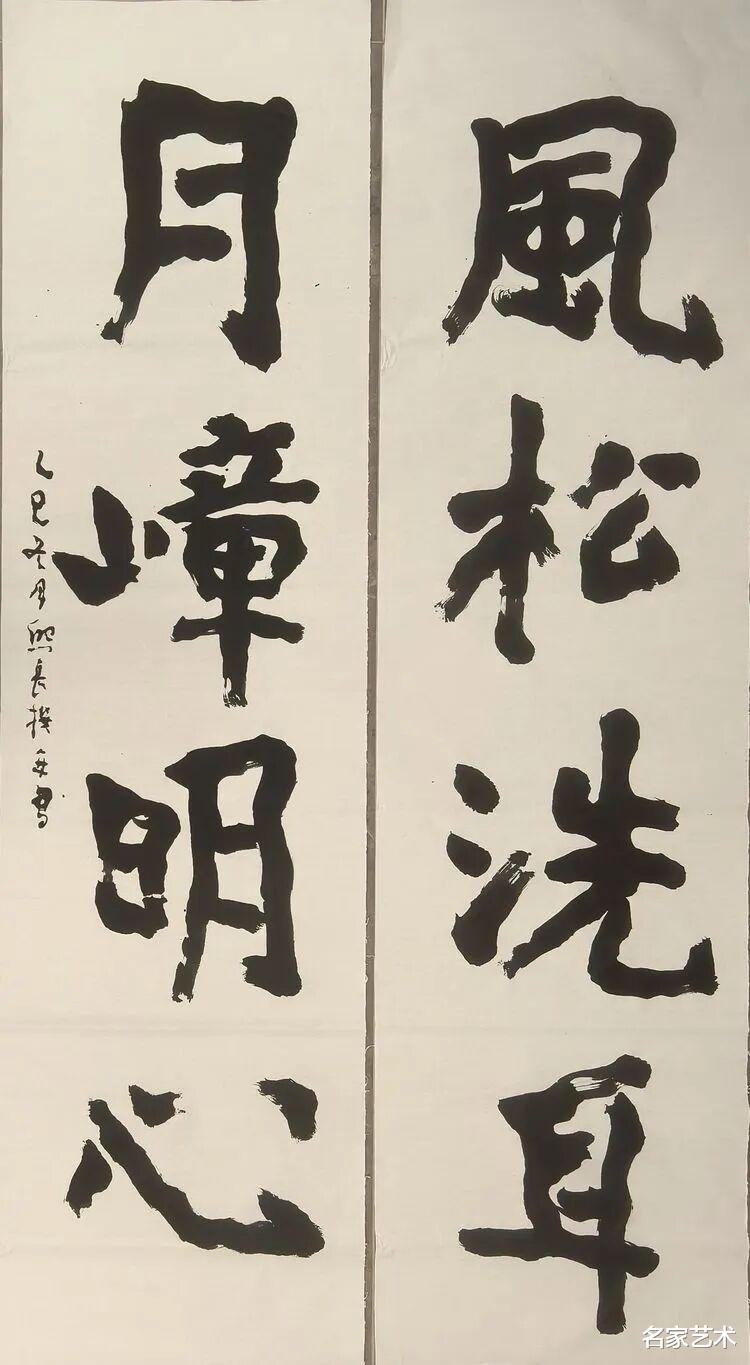 風松洗耳
月嶂明心
乙巳冬月熙長撰并書
名家艺术